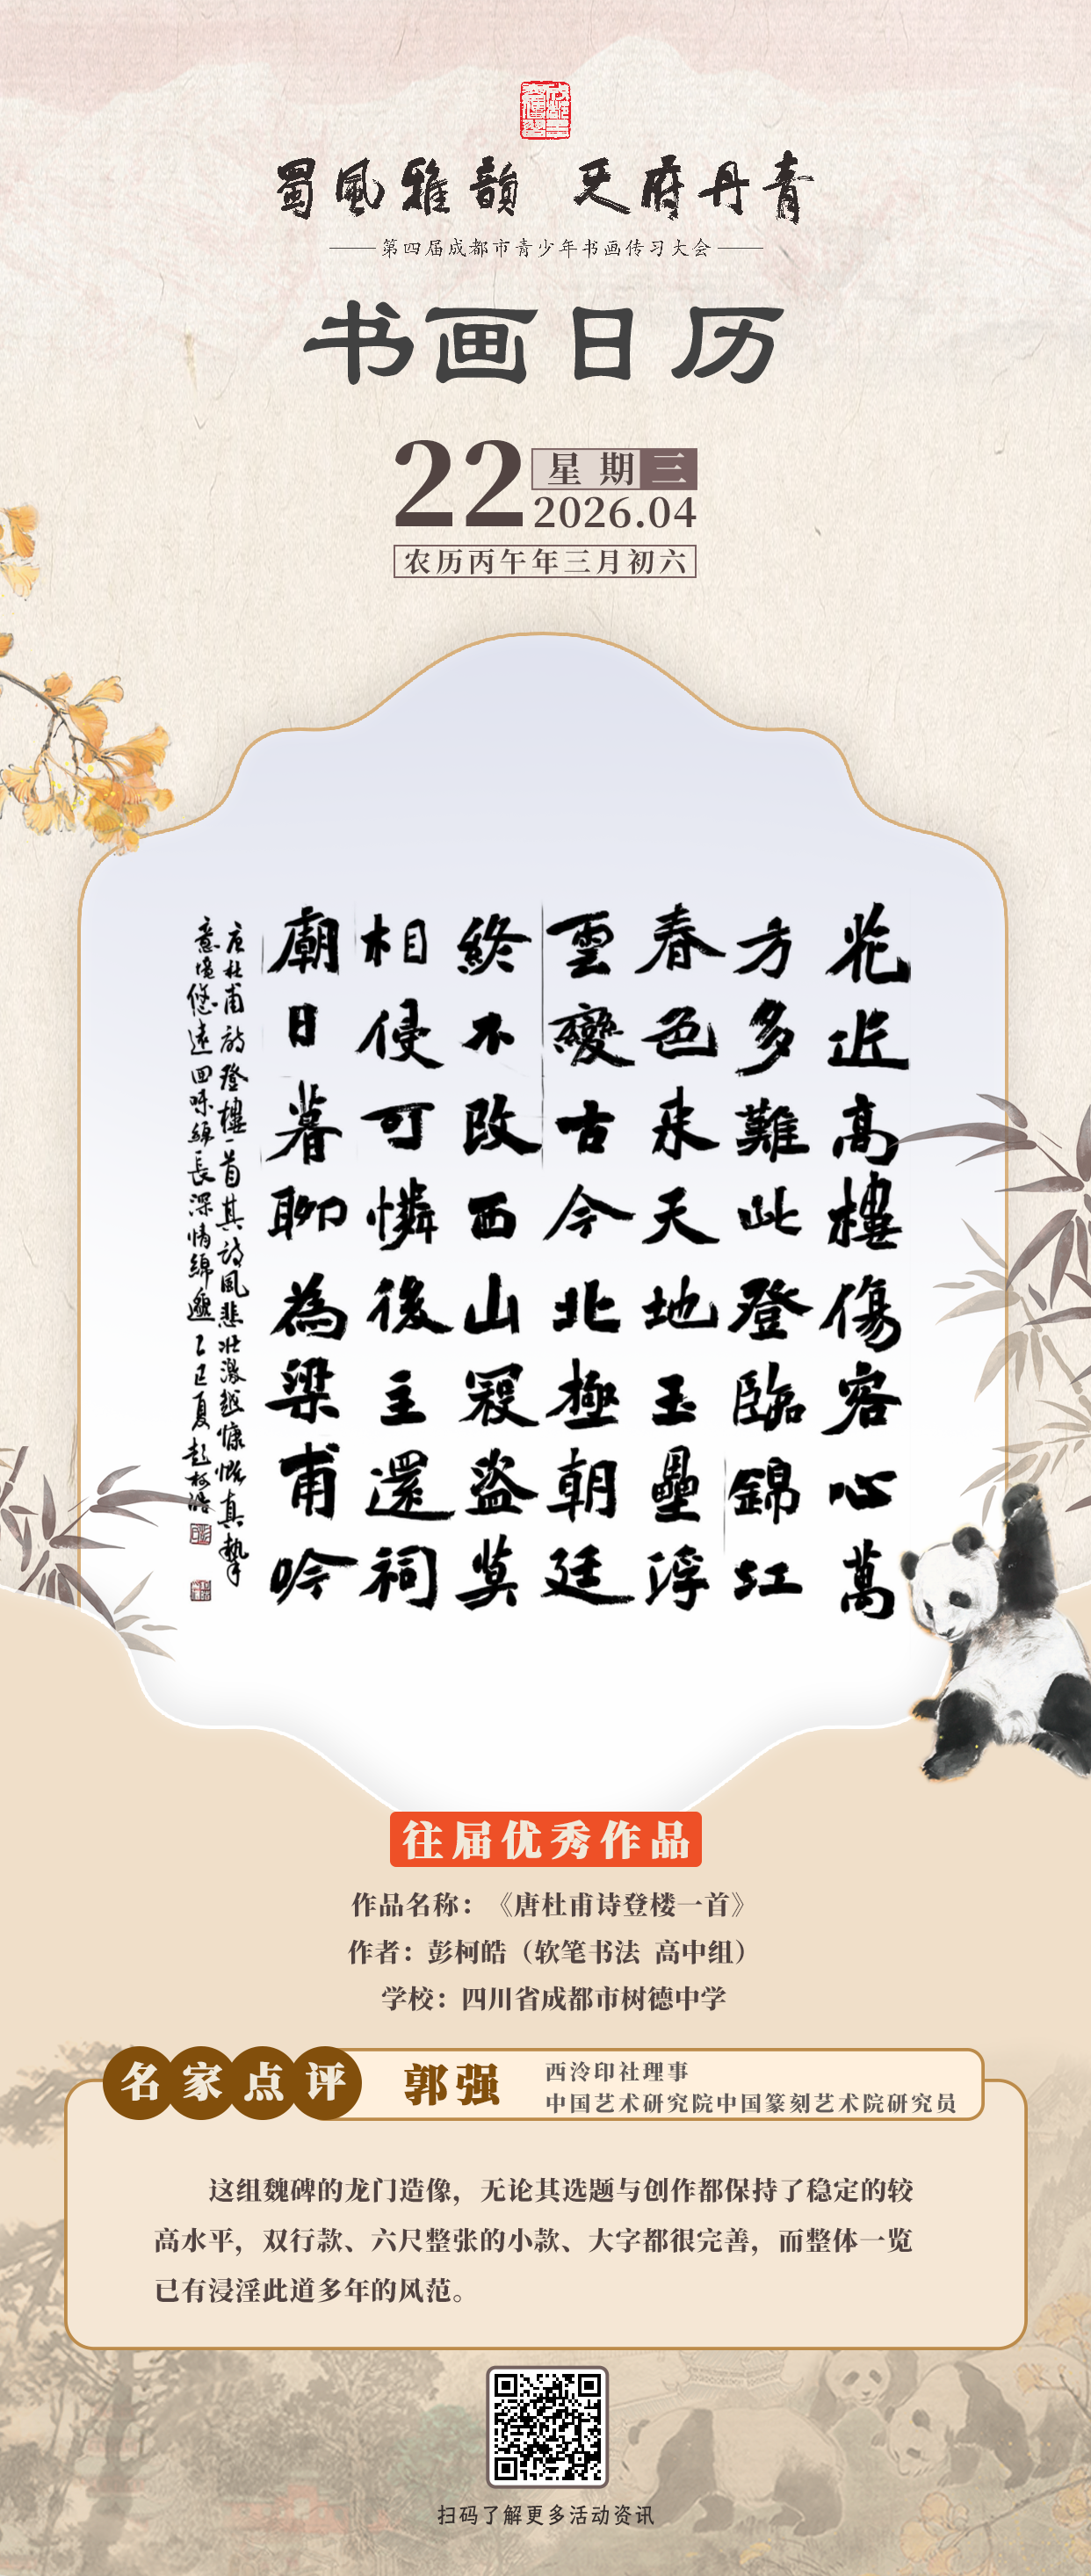 蜀風雅韻 天府丹青
第四届成都市青少年书画传习大会
书画日历
22
星期三
2026.04
农历丙午年三月初六
花近高樓傷客心萬
方多難此登臨錦江
春色來天地玉壘浮
雲變古今北極朝廷
終不改西山寇盜莫
相侵可憐後主還祠
廟日暮聊為梁甫吟
唐杜甫詩登樓一首其詩風悲壯激越慷慨真摯
意境悠遠回味綿長深情綿邈乙巳夏彭柯皓
往届优秀作品
作品名称：《唐杜甫诗登楼一首》
作者：彭柯皓（软笔书法 高中组）
学校：四川省成都市树德中学
名家点评
郭强
西泠印社理事
中国艺术研究院中国篆刻艺术院研究员
这组魏碑的龙门造像，无论其选题与创作都保持了稳定的较
高水平，双行款、六尺整张的小款、大字都很完善，而整体一览
已有浸淫此道多年的风范。
扫码了解更多活动资讯